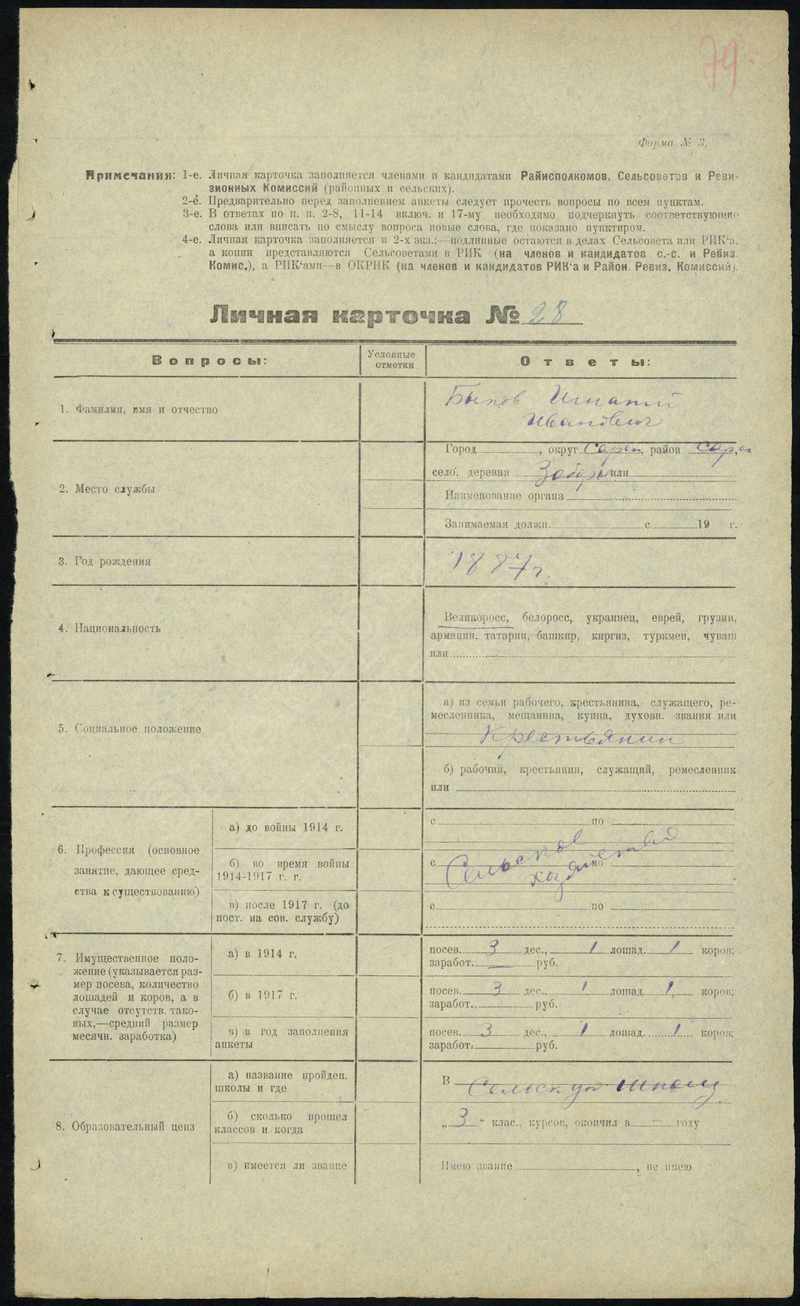 79.
Форма № 3.
Примечания: 1-е. Личная карточка заполняется членами и кандидатами Райисполкомов, Сельсоветов и Реви-
зионных Комиссий (районных и сельских).
2-е. Предварительно перед заполнением анкеты следует прочесть вопросы по всем пунктам.
3-е. В ответах по п. п. 2-8, 11-14 включ. и 17-му необходимо подчеркнуть соответствующие
слова или вписать по смыслу вопроса новые слова, где показано пунктиром.
4-е. Личная карточка заполняется в 2-х экз.:—подлинные остаются в делах Сельсовета или РИК'а,
а копии представляются Сельсоветами в РИК (на членов и кандидатов с.-с. и Ревиз.
Комис.), а РИК'ами—в ОКРИК (на членов и кандидатов РИК'а и Район. Ревиз. Комиссий).
Личная карточка № 28
Вопросы:
Условные
отметки
Ответы:
1. Фамилия, имя и отчество
Быков Игнатий
Иванович
2. Место службы
Город , округ Сарап, район Сарап
село, деревня или
Наименование органа
Занимаемая должн. с 19 г.
3. Год рождения
1887 г.
4. Национальность
Великоросс, белоросс, украинец, еврей, грузин,
армянин, татарин, башкир, киргиз, туркмен, чуваш
или
5. Социальное положение
а) из семьи рабочего, крестьянина, служащего, ре-
месленника, мещанина, купца, духовн. звания или
Крестьянин
б) рабочий, крестьянин, служащий, ремесленник
или
6. Профессия (основное
занятие, дающее сред-
ства к существованию)
а) до войны 1914 г.
с по
б) во время войны
1914-1917 г. г.
с Сельское по
хозяйство
в) после 1917 г. (до
пост. на сов. службу)
с по
7. Имущественное поло-
жение (указывается раз-
мер посева, количество
лошадей и коров, а в
случае отсутств. тако-
вых,—средний размер
месячн. заработка)
а) в 1914 г.
посев. 3 дес., 1 лошад. 1 коров;
заработ. — руб.
б) в 1917 г.
посев. 3 дес., 1 лошад. 1 коров;
заработ. руб.
в) в год заполнения
анкеты
посев. 3 дес., 1 лошад. 1 коров;
заработ. руб.
8. Образовательный ценз
а) название пройден.
школы и где
В Сельскую школу
б) сколько прошел
классов и когда
„ 3 " клас., курсов, окончил в — году
в) имеется ли звание
Имею звание , не имею